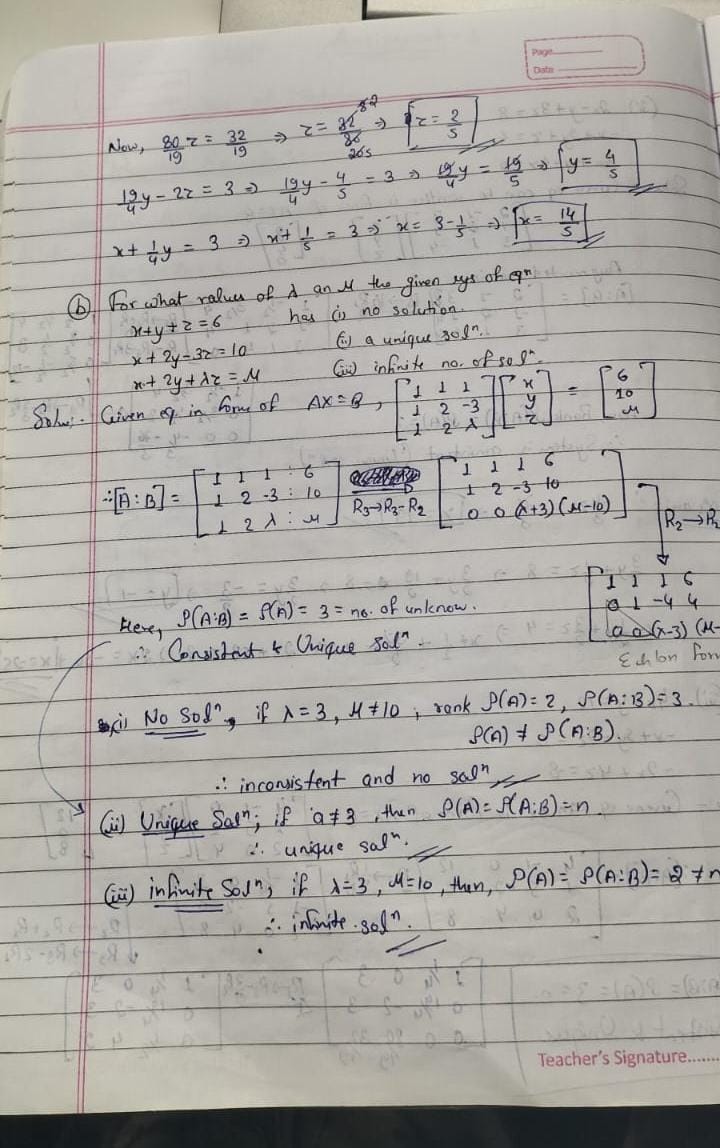 Page
Date
Now, 80/19 z = 32/19 ⇒ z = ⇒ z = 2/5
19/4 y - 2z = 3 ⇒ 19/4 y - 4/5 = 3 ⇒ 19/4 y = 19/5 ⇒ y = 4/5
x + 1/4 y = 3 ⇒ x + 1/5 = 3 ⇒ x = 3 - 1/5 ⇒ x = 14/5
(b) For what values of λ an M the given sys of eqn
x+y+z=6 has (i) no solution.
x+2y-3z=10 (ii) a unique solⁿ.
x+2y+λz=M (iii) infinite no. of solⁿ.
Solu:- Given eq in form of AX=B, [1 1 1; 1 2 -3; 1 2 λ] [x; y; z] = [6; 10; M]
∴[A:B] = [1 1 1 : 6; 1 2 -3 : 10; 1 2 λ : M] R₃→R₃-R₂ [1 1 1 6; 1 2 -3 10; 0 0 (λ+3) (M-10)]
R₂→R
[1 1 1 6; 0 1 -4 4; 0 0 (λ-3) (M-
Echlon form
Here, ρ(A:B) = ρ(A) = 3 = no. of unknow.
∴ Consistent & Unique solⁿ.
(i) No Solⁿ, if λ=3, M≠10, rank ρ(A)=2, ρ(A:B)=3.
ρ(A) ≠ ρ(A:B).
∴ inconsistent and no solⁿ
(ii) Unique Solⁿ; if a≠3, then ρ(A)=ρ(A:B)=n.
∴ unique solⁿ.
(iii) infinite Solⁿ, if λ=3, M=10, then, ρ(A)=ρ(A:B)=2≠n
∴ infinite solⁿ.
Teacher's Signature.......